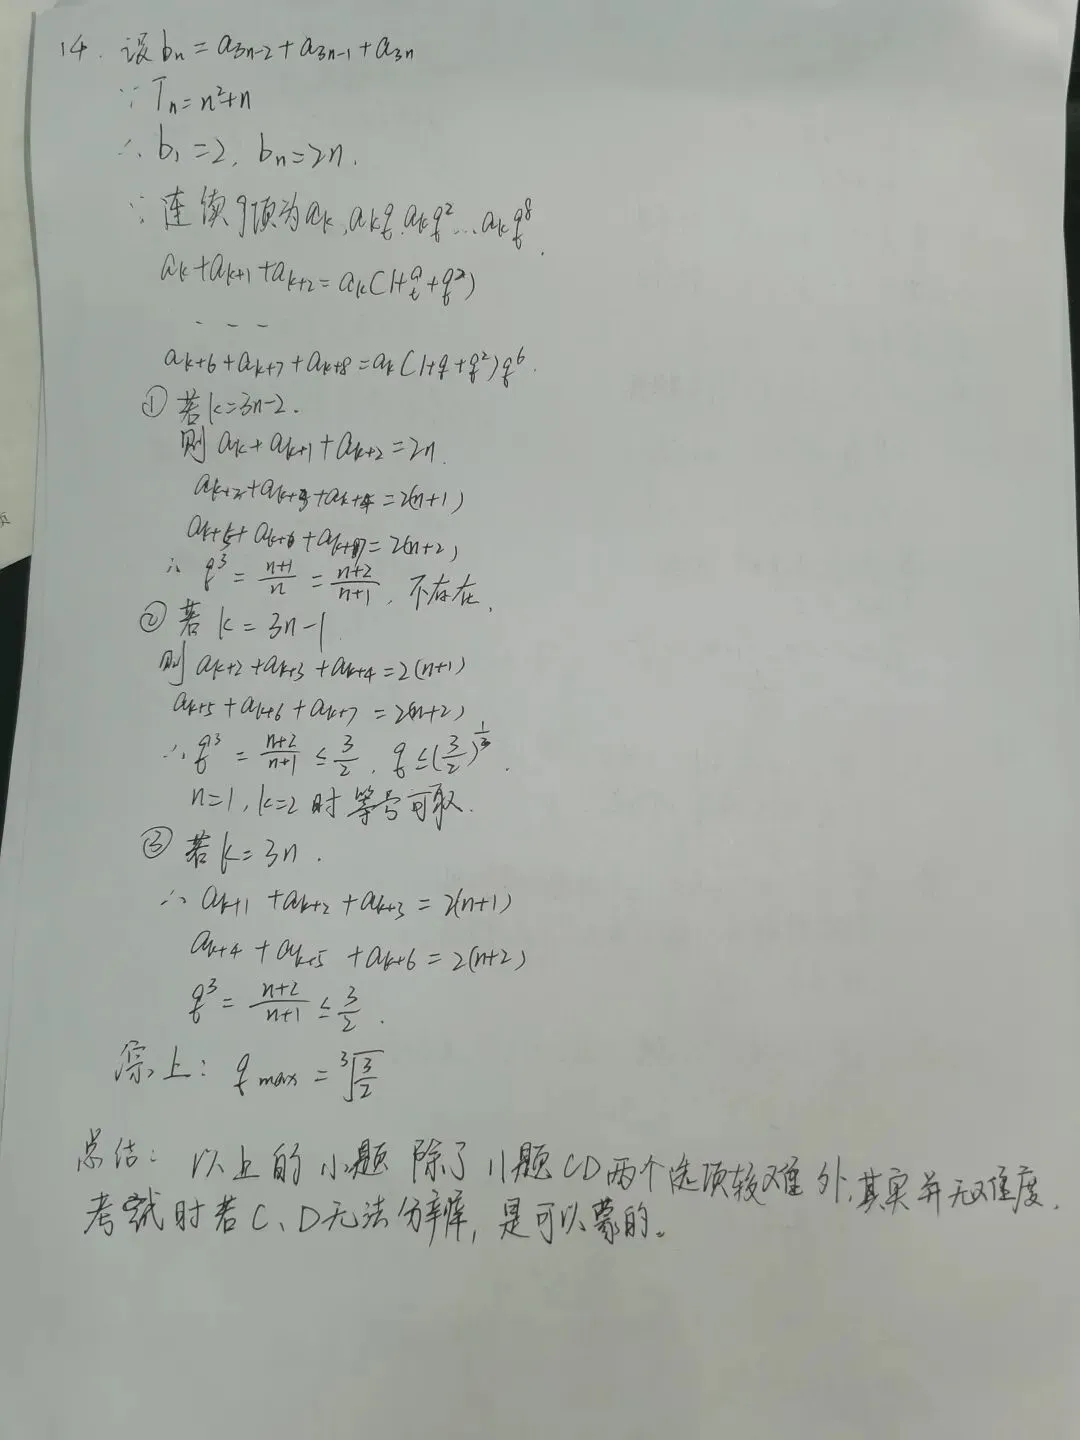 14. 设bn=a3n-2+a3n-1+a3n
∵Tn=n²+n
∴b1=2, bn=2n.
∵连续9项为ak,akq,akq²…akq⁸.
ak+ak+1+ak+2=ak(1+q+q²)
- - -
ak+6+ak+7+ak+8=ak(1+q+q²)q⁶.
①若k=3n-2.
则ak+ak+1+ak+2=2n.
=2(n+1)
=2(n+2),
∴q³=(n+1)/n=(n+2)/(n+1),不存在,
②若k=3n-1
则ak+2+ak+3+ak+4=2(n+1)
ak+5+ak+6+ak+7=2(n+2)
∴q³=(n+2)/(n+1)≤3/2,q≤(3/2)^(1/3).
n=1,k=2时等号可取.
③若k=3n.
∴ak+1+ak+2+ak+3=2(n+1)
ak+4+ak+5+ak+6=2(n+2)
q³=(n+2)/(n+1)≤3/2.
综上:qmax=³√(3/2)
总结:以上的小题除了11题CD两个选项较难外,其实并无难度.
考试时若C、D无法分辨,是可以蒙的。